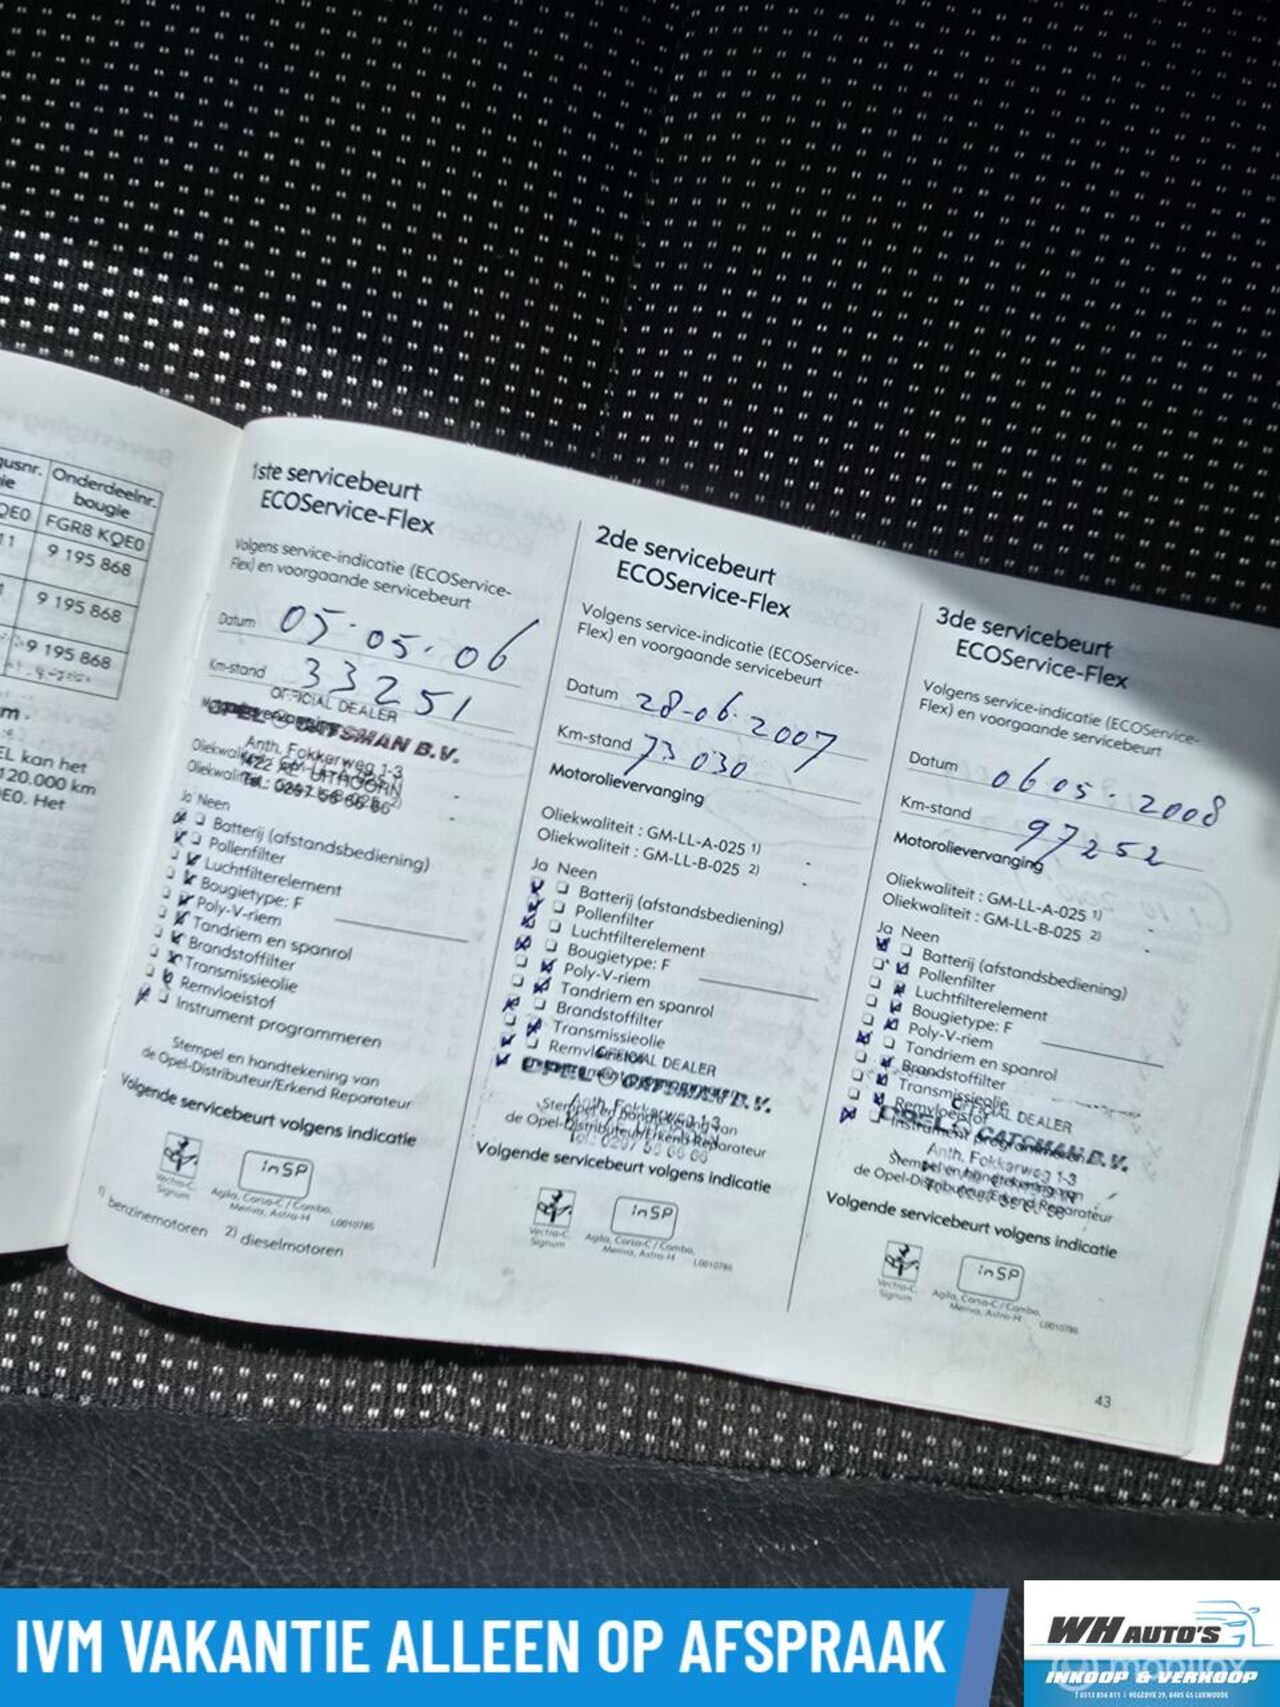 Onderdeelnr.
bougie
FGR8 KQE0
9 195 868
9 195 868
9 195 868
EL kan het
120.000 km
E0. Het
1ste servicebeurt
ECOService-Flex
Volgens service-indicatie (ECOService-
Flex) en voorgaande servicebeurt
Datum 05-05-06
Km-stand 33251
OFFICIAL DEALER
OPEL GATSMAN B.V.
Anth. Fokkerweg 1-3
1422 AE UITHOORN
Tel.: 0297 56 66 66
Ja Neen
Batterij (afstandsbediening)
Pollenfilter
Luchtfilterelement
Bougietype: F
Poly-V-riem
Tandriem en spanrol
Brandstoffilter
Transmissieolie
Remvloeistof
Instrument programmeren
Stempel en handtekening van
de Opel-Distributeur/Erkend Reparateur
Volgende servicebeurt volgens indicatie
inSP
Vectra-C
Signum
Agila, Corsa-C/Combo,
Meriva, Astra-H
L0010785
1) benzinemotoren 2) dieselmotoren
2de servicebeurt
ECOService-Flex
Volgens service-indicatie (ECOService-
Flex) en voorgaande servicebeurt
Datum 28-06-2007
Km-stand 73030
Motorolievervanging
Oliekwaliteit : GM-LL-A-025 1)
Oliekwaliteit : GM-LL-B-025 2)
Ja Neen
Batterij (afstandsbediening)
Pollenfilter
Luchtfilterelement
Bougietype: F
Poly-V-riem
Tandriem en spanrol
Brandstoffilter
Transmissieolie
Remvloeistof
OFFICIAL DEALER
OPEL GATSMAN B.V.
Anth. Fokkerweg 1-3
Stempel en handtekening van
de Opel-Distributeur/Erkend Reparateur
Tel.: 0297 56 66 66
Volgende servicebeurt volgens indicatie
inSP
Vectra-C
Signum
Agila, Corsa-C/Combo,
Meriva, Astra-H
L0010785
3de servicebeurt
ECOService-Flex
Volgens service-indicatie (ECOService-
Flex) en voorgaande servicebeurt
Datum 06 05. 2008
Km-stand 97252
Motorolievervanging
Oliekwaliteit : GM-LL-A-025 1)
Oliekwaliteit : GM-LL-B-025 2)
Ja Neen
Batterij (afstandsbediening)
Pollenfilter
Luchtfilterelement
Bougietype: F
Poly-V-riem
Tandriem en spanrol
Brandstoffilter
Transmissieolie
Remvloeistof
Instrument programmeren
OFFICIAL DEALER
OPEL GATSMAN B.V.
Anth. Fokkerweg 1-3
Stempel en handtekening van
de Opel-Distributeur/Erkend Reparateur
Volgende servicebeurt volgens indicatie
inSP
Vectra-C
Signum
Agila, Corsa-C/Combo,
Meriva, Astra-H
L0010785
43
IVM VAKANTIE ALLEEN OP AFSPRAAK
WH AUTO'S
INKOOP & VERKOOP
T 0513 856 811 | HEGEDYK 29, 8405 GS LUXWOUDE